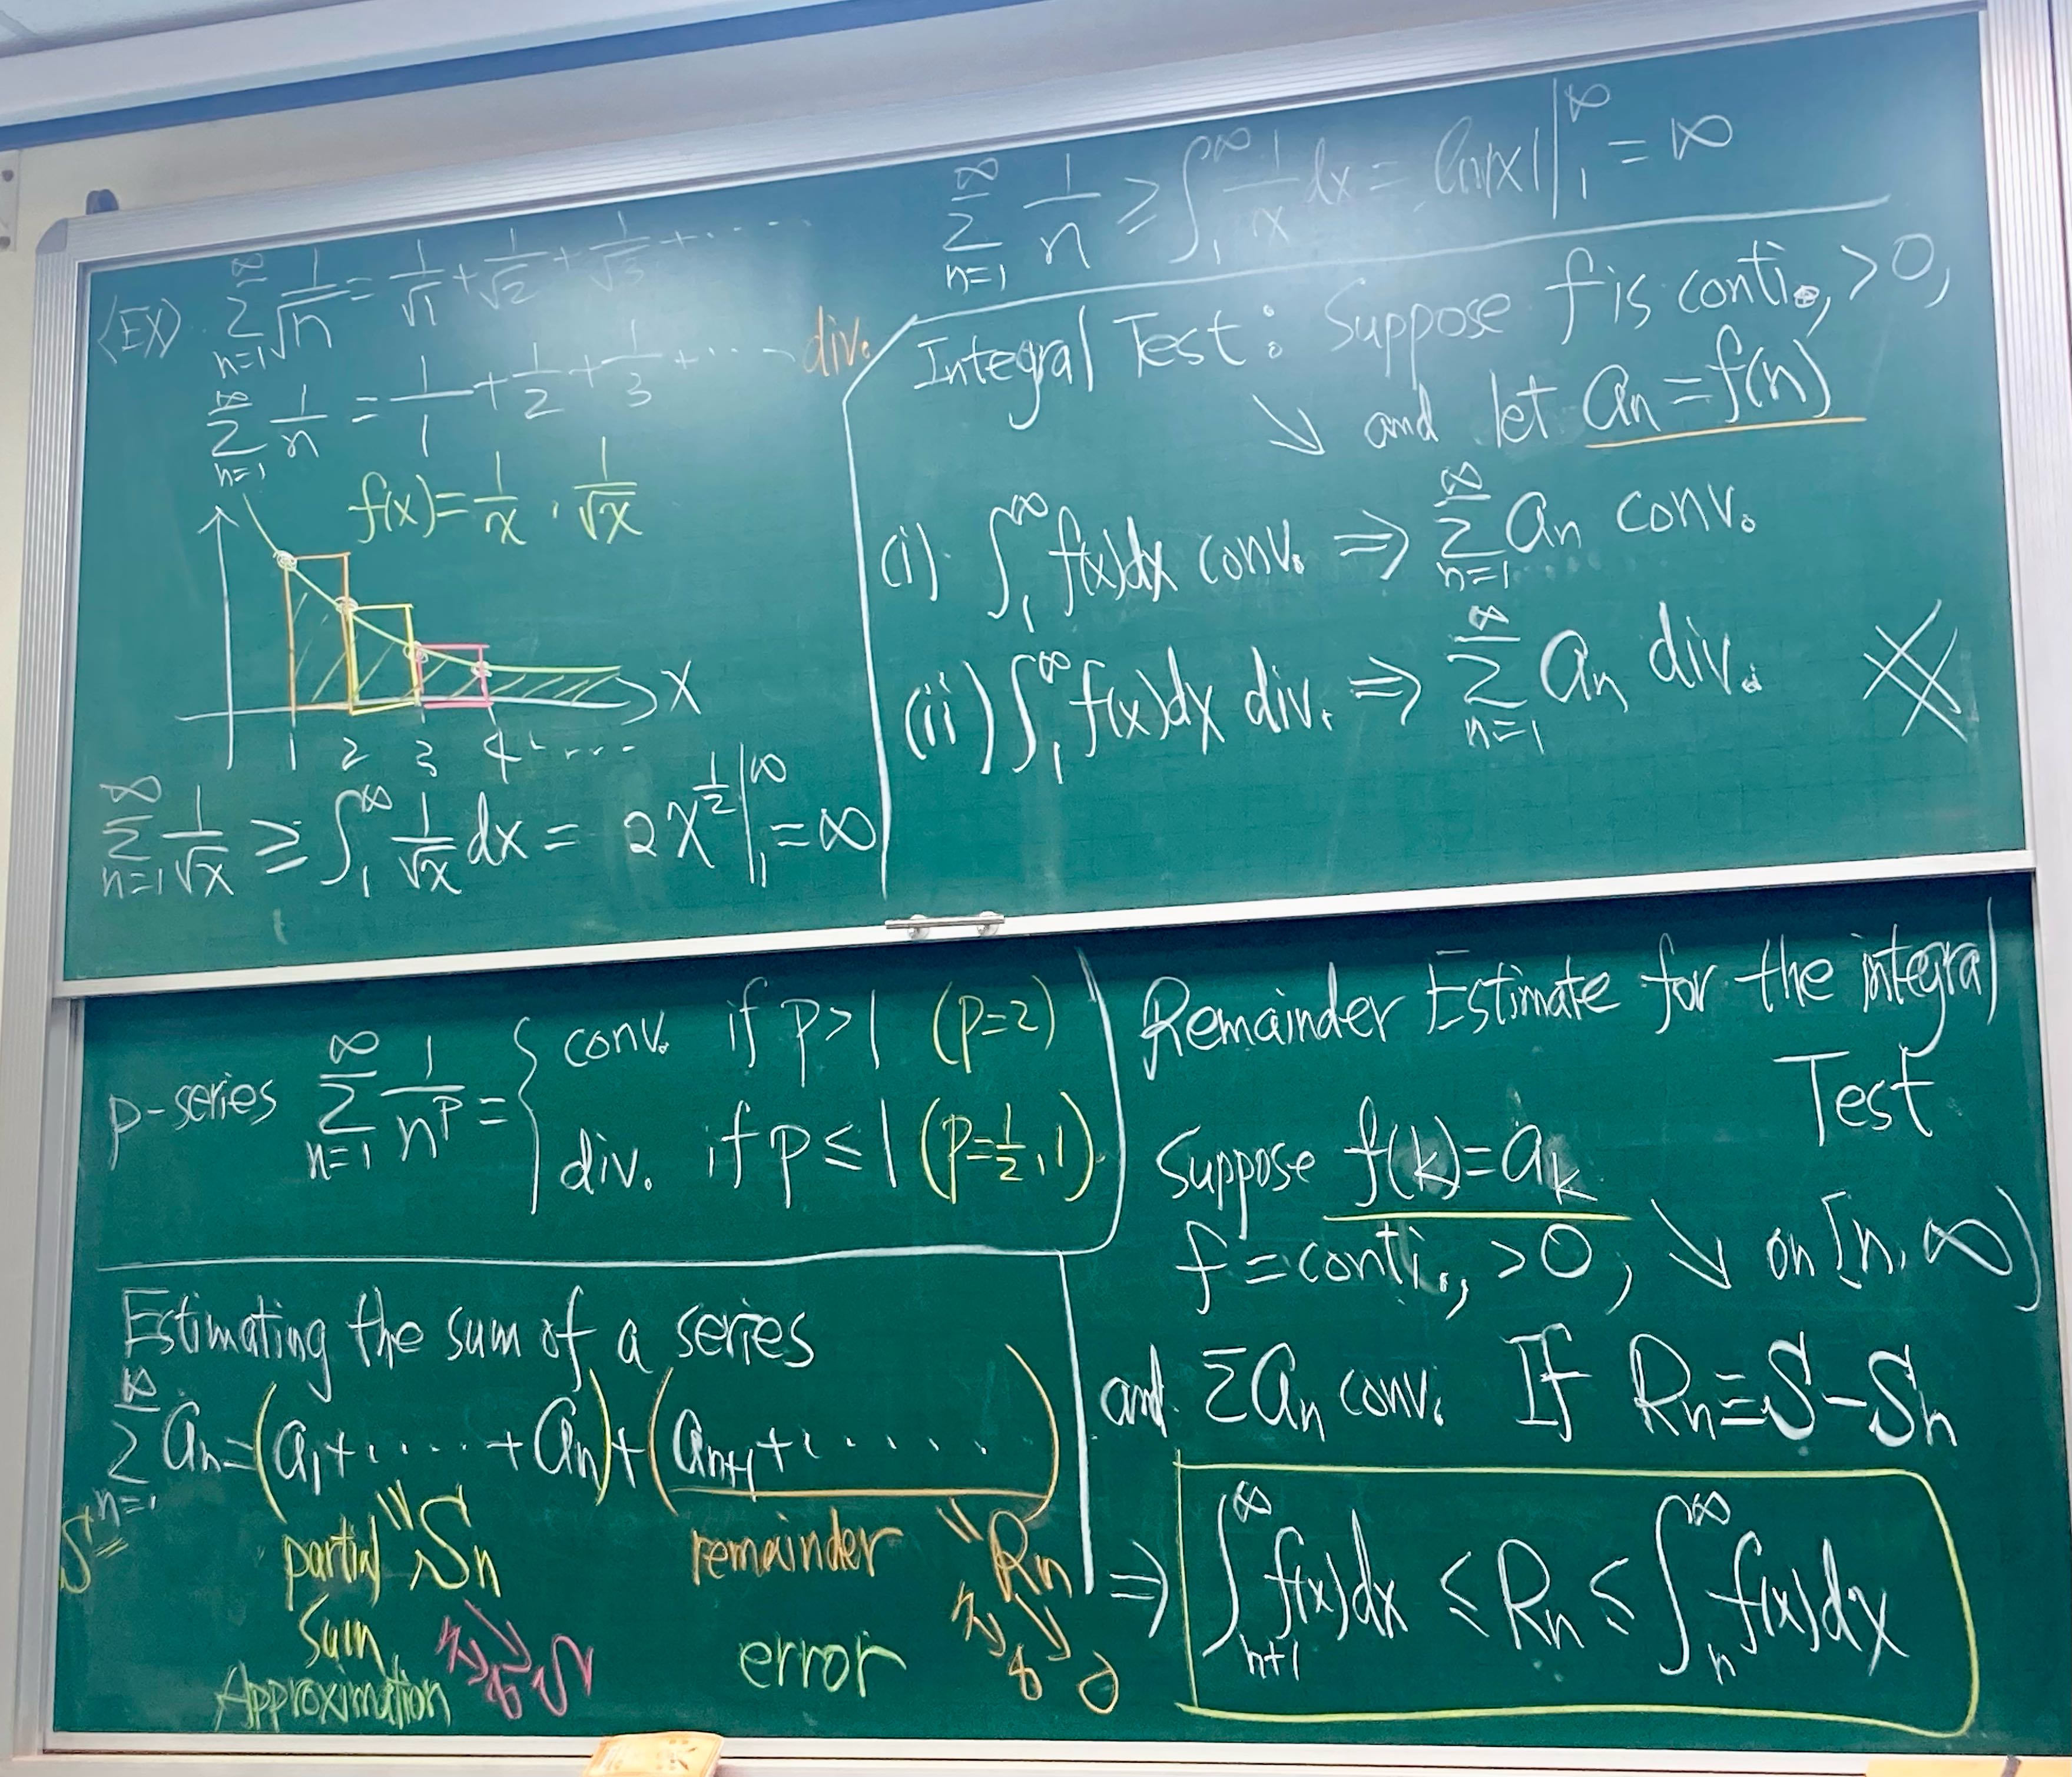 ⟨EX⟩ ∞Σn=1 1/√n = 1/√1 + 1/√2 + 1/√3 + ⋯⋯
∞Σn=1 1/n = 1/1 + 1/2 + 1/3 + ⋯ div.
f(x) = 1/x , 1/√x
X
1 2 3 4 ⋯
∞Σn=1 1/√x ≥ ∫₁^∞ 1/√x dx = 2x^(1/2) |₁^∞ = ∞
∞Σn=1 1/n ≥ ∫₁^∞ 1/x dx = ln|x| |₁^∞ = ∞
Integral Test: Suppose f is conti., >0,
↘ and let an = f(n)
(i) ∫₁^∞ f(x)dx conv. ⇒ ∞Σn=1 an conv.
(ii) ∫₁^∞ f(x)dx div. ⇒ ∞Σn=1 an div.
p-series ∞Σn=1 1/n^p = { conv. if p>1 (p=2)
div. if p≤1 (p=1/2, 1)
Estimating the sum of a series
∞Σn=1 an = (a1+⋯⋯+an) + (an+1+⋯⋯)
S= partial " Sn remainder " Rn
sum
Approximation error
n→∞ S n→∞ 0
Remainder Estimate for the integral
Test
Suppose f(k)=ak
f = conti., >0, ↘ on [n, ∞)
and Σan conv. If Rn = S−Sn
⇒ ∫n+1^∞ f(x)dx ≤ Rn ≤ ∫n^∞ f(x)dx